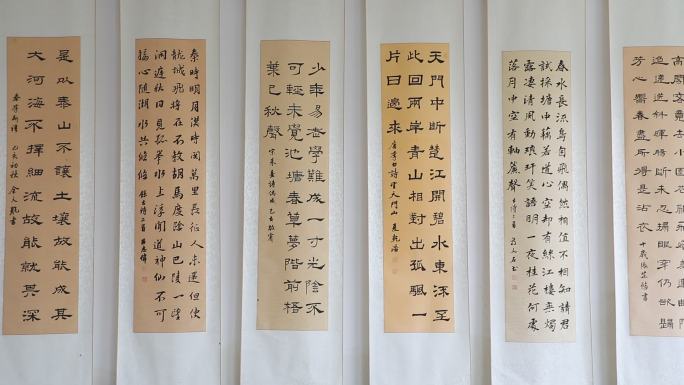 是以泰山不讓土壤故能成其
大河海不擇細流故能就其深
秦時明月漢時關萬里長征人未還但使
龍城飛將在不教胡馬度陰山巴陵一望
洞庭秋日見孤峯水上浮聞道神仙不可
接心隨湖水共悠悠 錄古詩二首
少年易老學難成一寸光陰不
可輕未覺池塘春草夢階前梧
葉已秋聲 宋朱熹詩偶成
天門中斷楚江開碧水東流至
此回兩岸青山相對出孤颿一
片日邊來 唐李白詩望天門山
春水長流鳥自飛偶然相值不相知請君
試採塘中藕若道心空却有絲江樓無燭
露凄清風動琅玕笑語明一夜桂花何處
落月中空有軸簾聲 古詩二首
高閣客竟去小園花亂飛
迢遞送斜暉腸斷未忍掃眼穿仍欲歸
芳心向春盡所得是沾衣